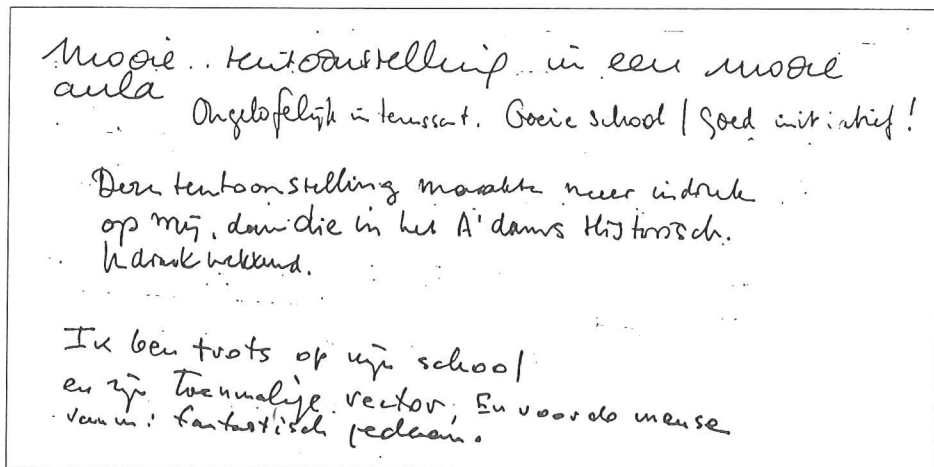 Mooie tentoonstelling in een mooie
aula
Ongelofelijk interessant. Goeie school / goed initiatief!
Deze tentoonstelling maakte meer indruk
op mij, dan die in het A'dams Historisch.
Indrukwekkend.
Ik ben trots op mijn school
en zijn toenmalige rector, En voor de mense
van m: fantastisch gedaan.